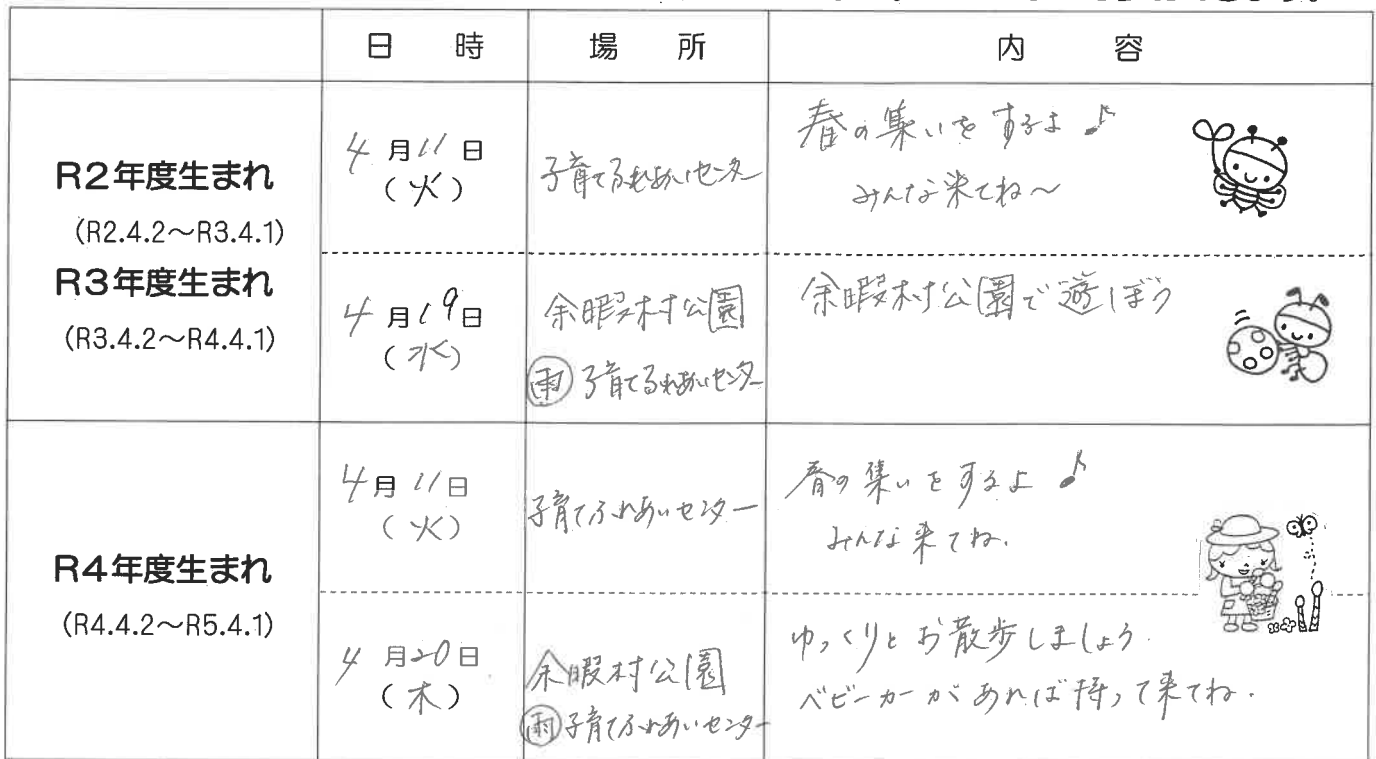 日 時 場 所 内 容
R2年度生まれ
(R2.4.2～R3.4.1)
R3年度生まれ
(R3.4.2～R4.4.1)
4月11日
(火)
子育てふれあいセンター
春の集いをするよ♪
みんな来てね～
4月19日
(水)
余暇村公園
雨 子育てふれあいセンター
余暇村公園で遊ぼう
R4年度生まれ
(R4.4.2～R5.4.1)
4月11日
(火)
子育てふれあいセンター
春の集いをするよ♪
みんな来てね.
4月20日
(木)
余暇村公園
雨 子育てふれあいセンター
ゆっくりとお散歩しましょう.
ベビーカーがあれば持って来てね.